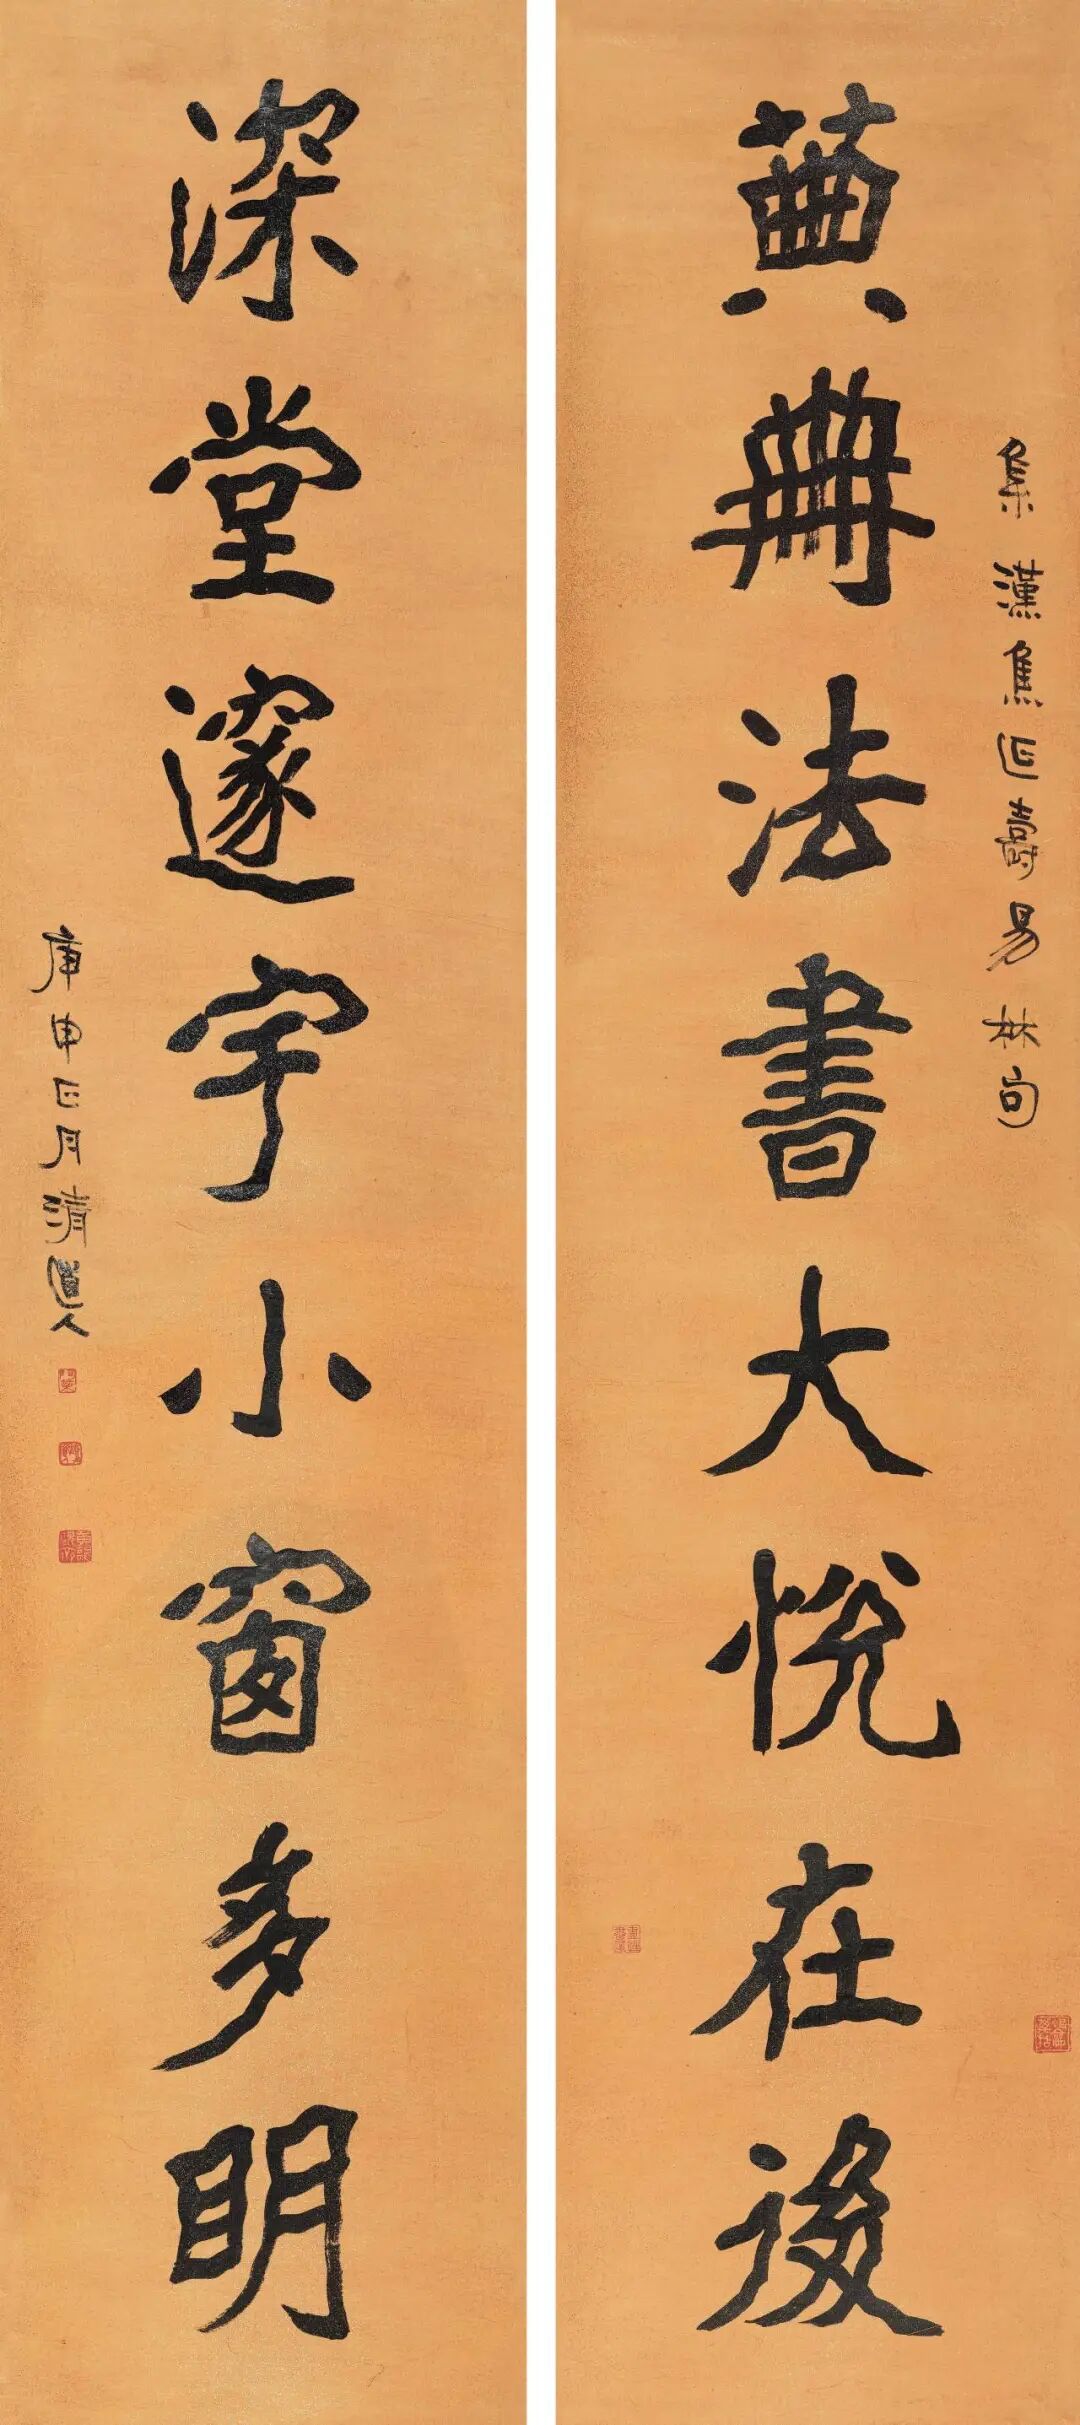 集漢焦延壽易林句
典冊法書大悅在後
深堂邃宇小窗多明
庚申正月清道人